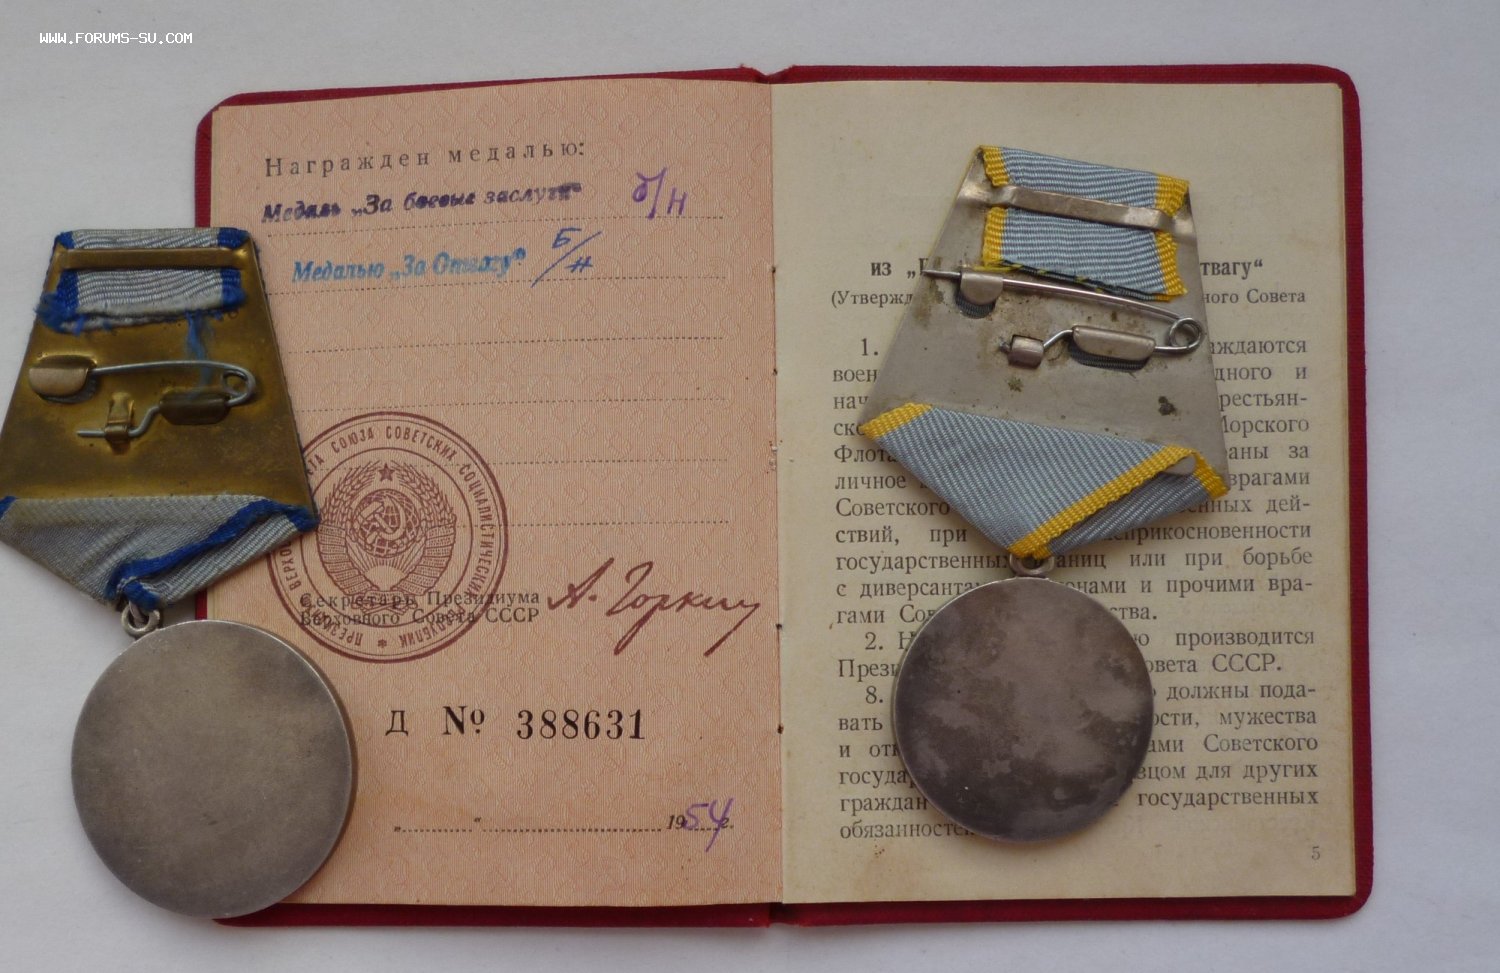 WWW.FORUMS-SU.COM
Награжден медалью:
Медаль „За боевые заслуги“ б/н
Медалью „За Отвагу“ Б/н
СОЮЗА СОВЕТСКИХ СОЦИАЛИСТИЧЕСКИХ
Секретарь Президиума
Верховного Совета СССР
А. Горкин
Д № 388631
„ “ 1954 г.
из „ твагу“
(Утвержд ного Совета
1. аждаются
воен дного и
нач рестьян-
ско Морского
Флота аны за
личное врагами
Советского енных дей-
ствий, при еприкосновенности
государственных аниц или при борьбе
с диверсанта онами и прочими вра-
гами Сов ства.
2. Н ю производится
Прези овета СССР.
8. должны пода-
вать ости, мужества
и отв ами Советского
госуда зцом для других
граждан государственных
обязанностей
5